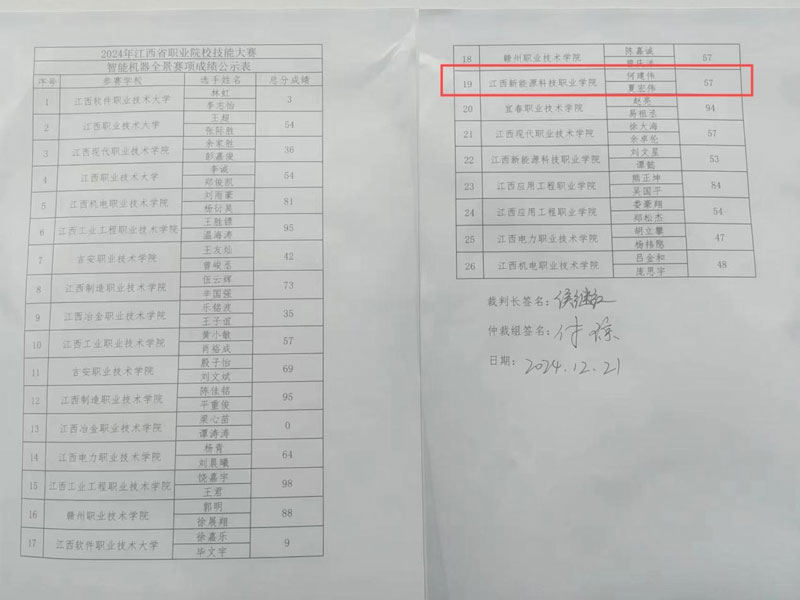 2024年江西省职业院校技能大赛
智能机器全景赛项成绩公示表
序号 参赛学校 选手姓名 总分成绩
1 江西软件职业技术大学 林虹 3
李志怡
2 江西职业技术大学 王超 54
张阿胜
3 江西现代职业技术学院 余家胜 36
彭嘉俊
4 江西职业技术大学 李诚 54
郑俊凯
5 江西机电职业技术学院 刘雨豪 81
杨衍昊
6 江西工业工程职业技术学院 王胜镖 95
温海涛
7 吉安职业技术学院 王友灿 42
曾峻丞
8 江西制造职业技术学院 伍云辉 73
辛国强
9 江西冶金职业技术学院 乐锴波 35
王子谊
10 江西工业职业技术学院 黄小敏 57
肖裕成
11 吉安职业技术学院 殷子怡 69
刘文斌
12 江西制造职业技术学院 陈佳铭 95
平重俊
13 江西冶金职业技术学院 梁心苗 0
谭涛涛
14 江西电力职业技术学院 杨贵 64
刘晨曦
15 江西工业工程职业技术学院 饶嘉宇 98
王君
16 赣州职业技术学院 郭明 88
徐展翔
17 江西软件职业技术大学 徐嘉乐 9
毕文宇
18 赣州职业技术学院 陈嘉诚 57
19 江西新能源科技职业学院 何建伟 57
夏宏伟
20 宜春职业技术学院 赵英 94
易租丞
21 江西现代职业技术学院 徐大海 57
余卓伦
22 江西新能源科技职业学院 刘文星 53
谭懿
23 江西应用工程职业学院 熊正坤 84
吴国平
24 江西应用工程职业学院 娄豪翔 54
郑松杰
25 江西电力职业技术学院 胡立攀 47
杨祎愿
26 江西机电职业技术学院 吕金和 48
庞思宇
裁判长签名：
仲裁组签名：
日期：2024.12.21